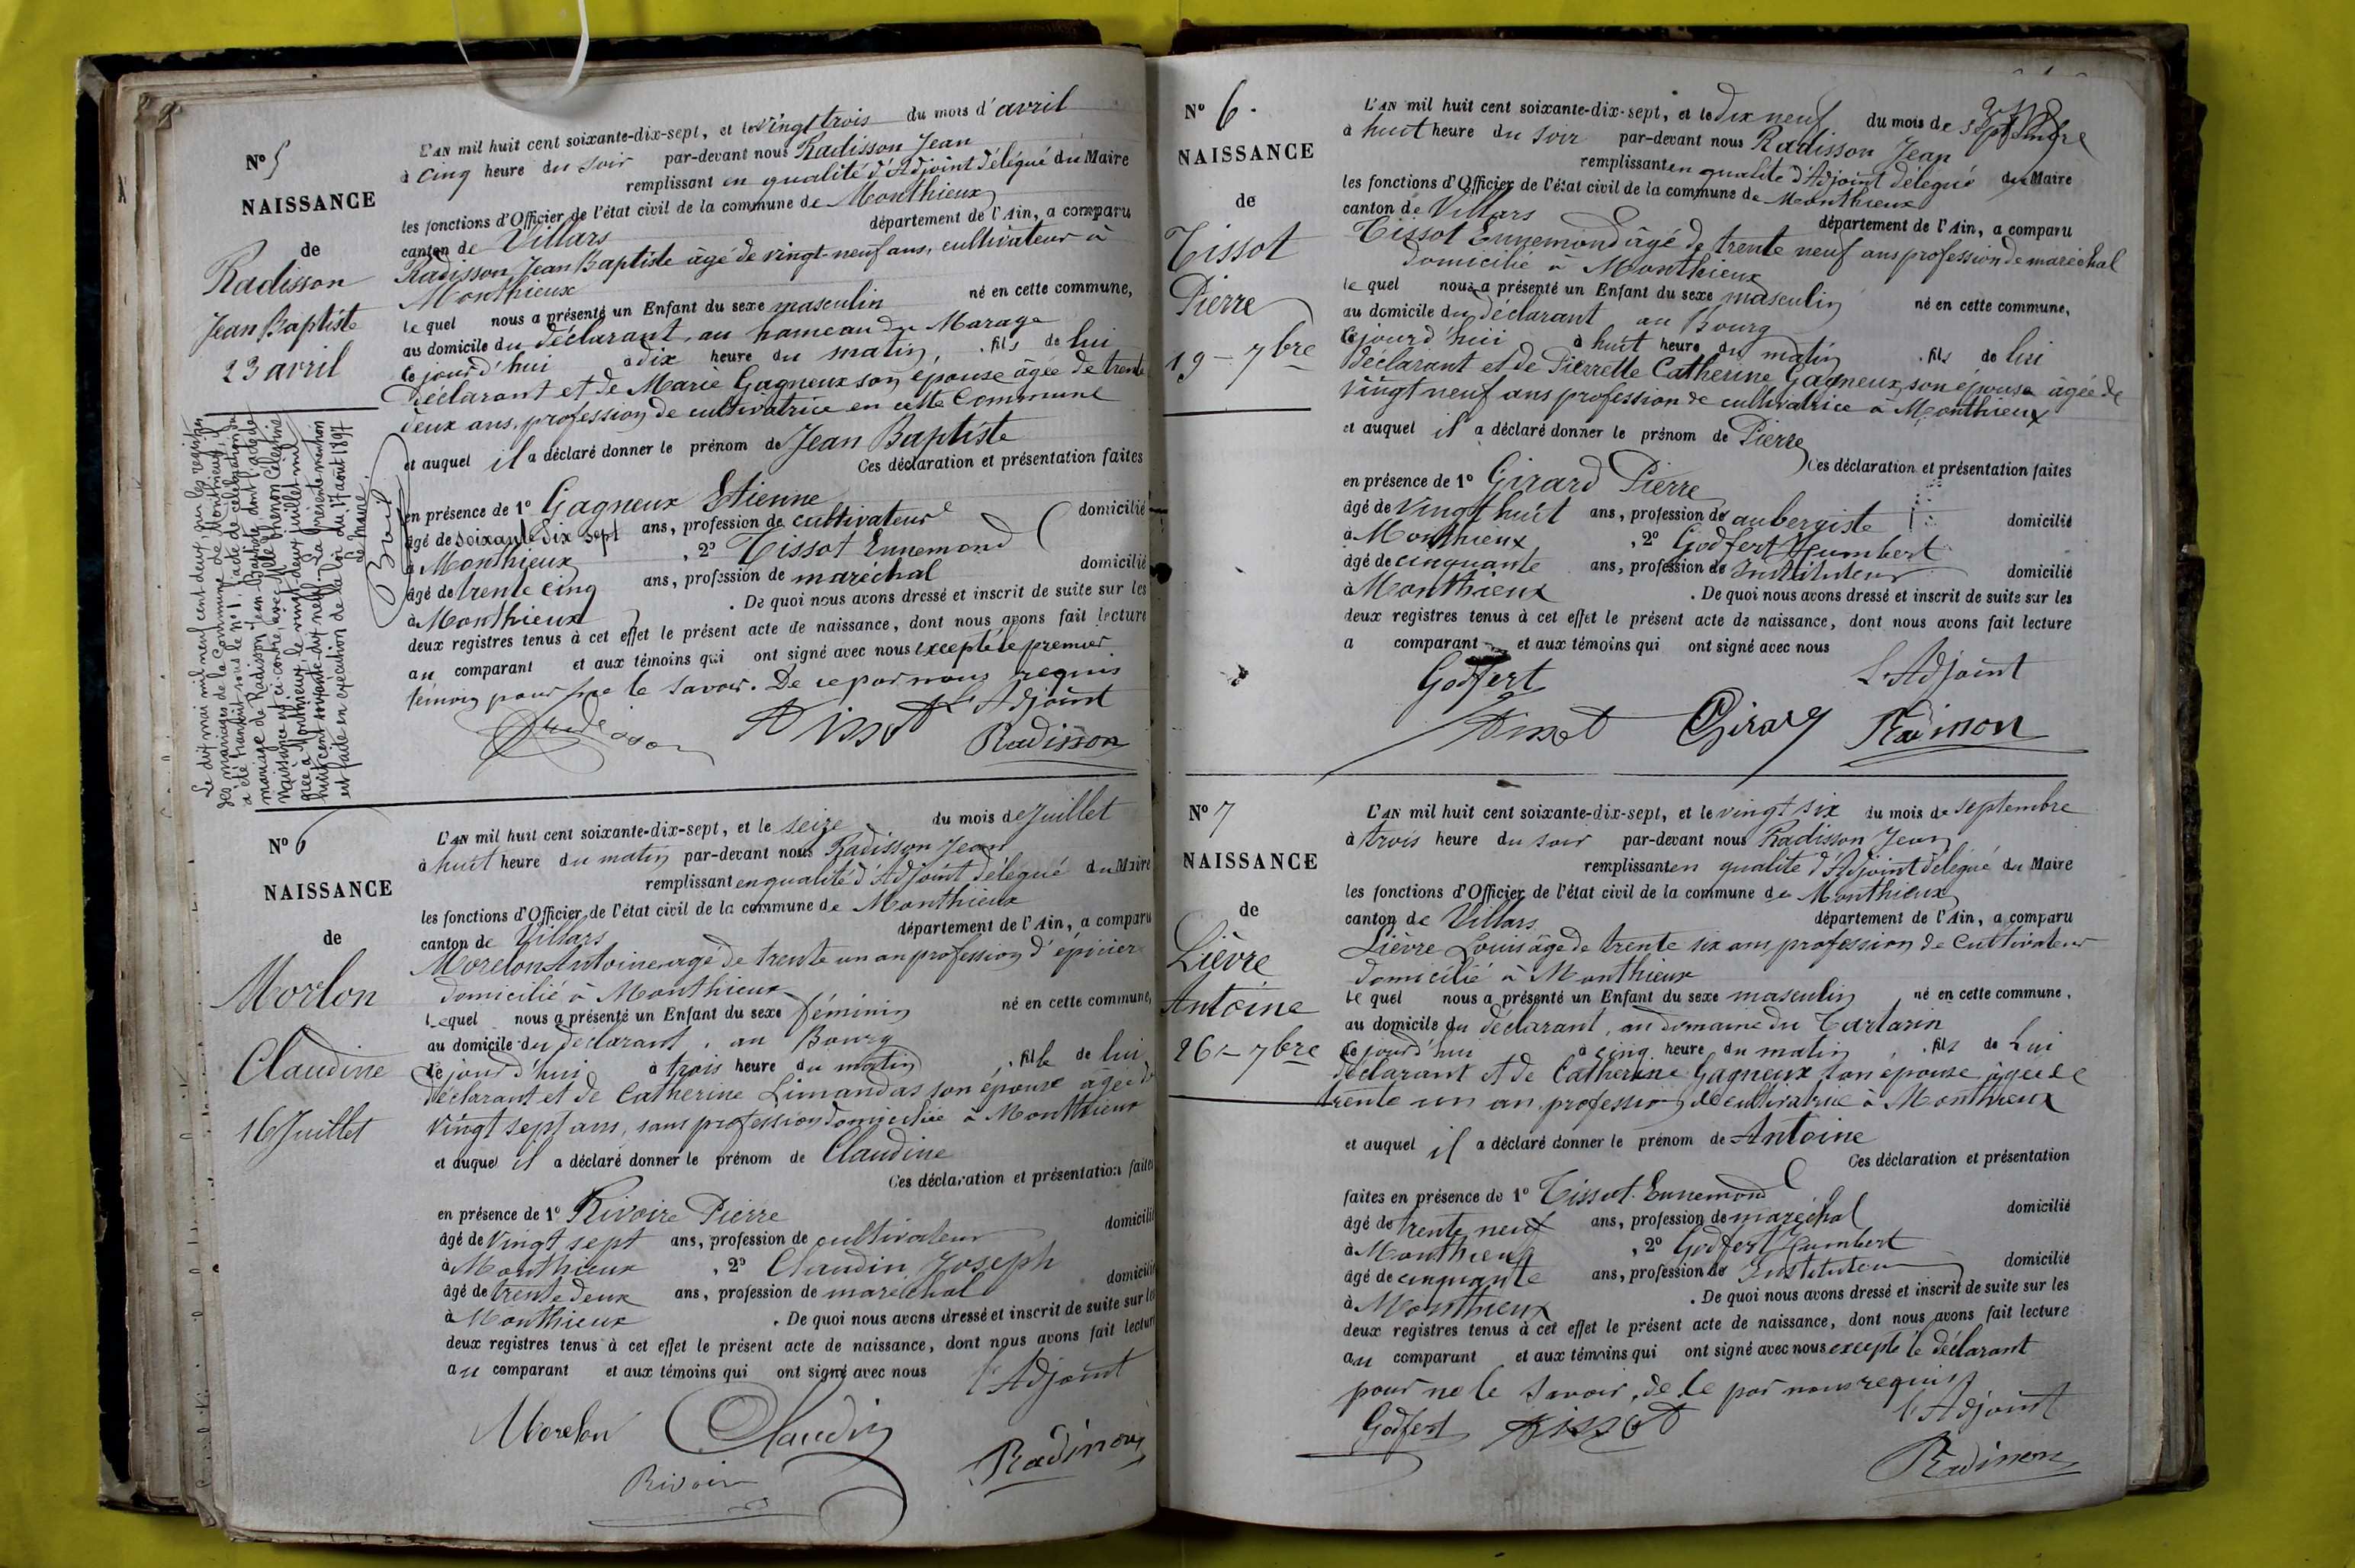 N° 5
NAISSANCE
de
Radisson
Jean Baptiste
23 avril
Le dix mai mil neuf cent deux, sur les registres
des mariages de la Commune de Monthieux, il
a été transcrit sous le n° 1, l'acte de célébration du
mariage de Radisson Jean-Baptiste dont l'acte de
Naissance est ci-contre, avec Mlle Célestine
née à Monthieux le vingt deux juillet mil
huit cent soixante-dix neuf. La présente mention
est faite en exécution de la loi du 17 août 1897
Le Maire
L'AN mil huit cent soixante-dix-sept, et le vingt trois du mois d'avril
à cinq heure du soir par-devant nous Radisson Jean
remplissant en qualité d'Adjoint délégué du Maire
les fonctions d'Officier de l'état civil de la commune de Monthieux
canton de Villars département de l'Ain, a comparu
Radisson Jean Baptiste âgé de vingt-neuf ans, cultivateur à
Monthieux
le quel nous a présenté un Enfant du sexe masculin né en cette commune,
au domicile du déclarant, au hameau du Marage
ce jourd'hui à dix heure du matin, fils de lui
déclarant et de Marie Gagneux son épouse âgée de trente
deux ans, profession de cultivatrice en cette Commune
et auquel il a déclaré donner le prénom de Jean Baptiste
Ces déclaration et présentation faites
en présence de 1° Gagneux Etienne
âgé de soixante dix sept ans, profession de cultivateur domicilié
à Monthieux, 2° Tissot Ennemond
âgé de trente cinq ans, profession de maréchal domicilié
à Monthieux. De quoi nous avons dressé et inscrit de suite sur les
deux registres tenus à cet effet le présent acte de naissance, dont nous avons fait lecture
au comparant et aux témoins qui ont signé avec nous excepté le premier
témoin pour ne le savoir. De ce par nous requis
L'Adjoint
Tissot Radisson
N° 6
NAISSANCE
de
Morlon
Claudine
16 Juillet
L'AN mil huit cent soixante-dix-sept, et le seize du mois de Juillet
à huit heure du matin par-devant nous Radisson Jean
remplissant en qualité d'Adjoint délégué du Maire
les fonctions d'Officier de l'état civil de la commune de Monthieux
canton de Villars département de l'Ain, a comparu
Morelon Antoine âgé de trente un an profession d'épicier
domicilié à Monthieux
lequel nous a présenté un Enfant du sexe féminin né en cette commune,
au domicile du déclarant, au Bourg
ce jourd'hui à trois heure du matin, fille de lui
déclarant et de Catherine Limandas son épouse âgée de
vingt sept ans, sans profession domiciliée à Monthieux
et auquel il a déclaré donner le prénom de Claudine
Ces déclaration et présentation faites
en présence de 1° Rivoire Pierre
âgé de vingt sept ans, profession de cultivateur domicilié
à Monthieux, 2° Claudin Joseph
âgé de trente deux ans, profession de maréchal domicilié
à Monthieux. De quoi nous avons dressé et inscrit de suite sur les
deux registres tenus à cet effet le présent acte de naissance, dont nous avons fait lecture
au comparant et aux témoins qui ont signé avec nous l'Adjoint
Morelon Claudin Radisson
Rivoire
N° 6.
NAISSANCE
de
Tissot
Pierre
19 – 7bre
L'AN mil huit cent soixante-dix-sept, et le dix neuf du mois de septembre
à huit heure du soir par-devant nous Radisson Jean
remplissant en qualité d'Adjoint délégué du Maire
les fonctions d'Officier de l'état civil de la commune de Monthieux
canton de Villars département de l'Ain, a comparu
Tissot Ennemond âgé de trente neuf ans profession de maréchal
domicilié à Monthieux
le quel nous a présenté un Enfant du sexe masculin né en cette commune,
au domicile du déclarant au Bourg
ce jourd'hui à huit heure du matin, fils de lui
déclarant et de Pierrette Catherine Gagneux, son épouse âgée de
vingt neuf ans profession de cultivatrice à Monthieux
et auquel il a déclaré donner le prénom de Pierre
Ces déclaration et présentation faites
en présence de 1° Girard Pierre
âgé de vingt huit ans, profession de aubergiste domicilié
à Monthieux, 2° Godfert Humbert
âgé de cinquante ans, profession de Instituteur domicilié
à Monthieux. De quoi nous avons dressé et inscrit de suite sur les
deux registres tenus à cet effet le présent acte de naissance, dont nous avons fait lecture
a comparant et aux témoins qui ont signé avec nous
Godfert L'Adjoint
Tissot Girard Radisson
N° 7
NAISSANCE
de
Lièvre
Antoine
26 – 7bre
L'AN mil huit cent soixante-dix-sept, et le vingt six du mois de septembre
à trois heure du soir par-devant nous Radisson Jean
remplissant en qualité d'Adjoint délégué du Maire
les fonctions d'Officier de l'état civil de la commune de Monthieux
canton de Villars département de l'Ain, a comparu
Lièvre Louis âgé de trente six ans profession de cultivateur
domicilié à Monthieux
le quel nous a présenté un Enfant du sexe masculin, né en cette commune,
au domicile du déclarant, au domaine du Tartarin
ce jourd'hui à cinq heure du matin, fils de Lui
déclarant et de Catherine Gagneux son épouse âgée de
trente un an, profession de cultivatrice à Monthieux
et auquel il a déclaré donner le prénom de Antoine
Ces déclaration et présentation
faites en présence de 1° Tissot Ennemond
âgé de trente neuf ans, profession de maréchal domicilié
à Monthieux, 2° Godfert Humbert
âgé de cinquante ans, profession de Instituteur domicilié
à Monthieux. De quoi nous avons dressé et inscrit de suite sur les
deux registres tenus à cet effet le présent acte de naissance, dont nous avons fait lecture
au comparant et aux témoins qui ont signé avec nous excepté le déclarant
pour ne le savoir, de ce par nous requis
l'Adjoint
Godfert Tissot
Radisson